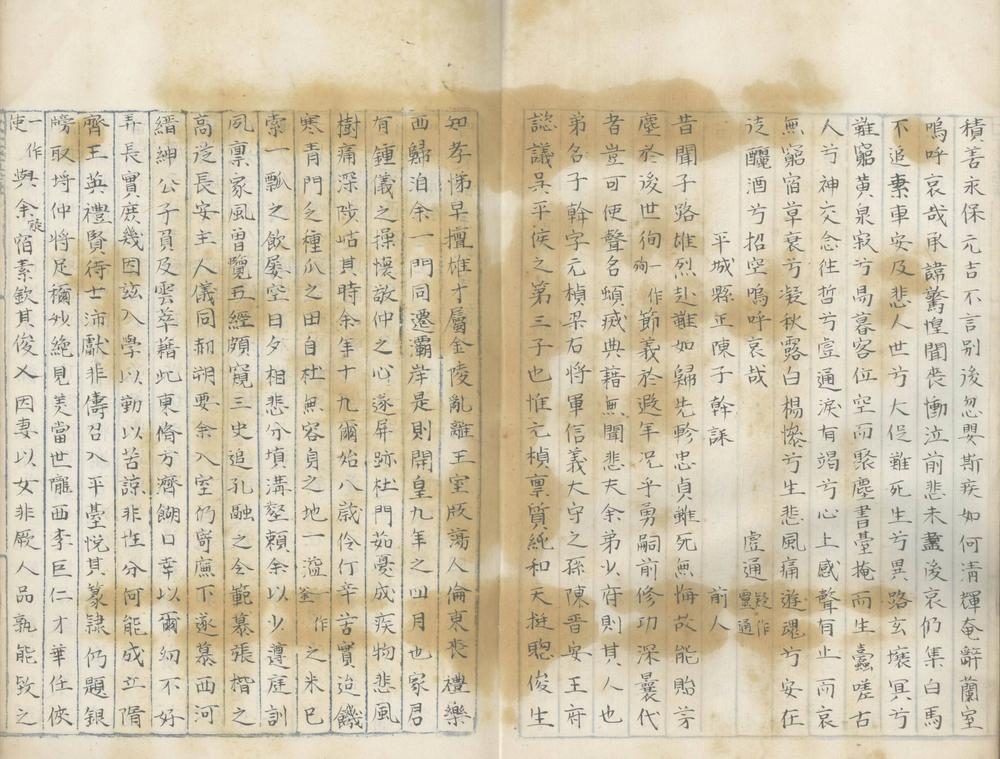 積善永保元吉不言別後忽嬰斯疾如何清輝奄辭蘭室
嗚呼哀哉承諱驚惶聞喪慟泣前悲未盡後哀仍集白馬
不追素車安及悲人世兮大促難死生兮異路玄壤冥兮
難窮黃泉寂兮曷暮客位空而聚塵書臺掩而生蠹嗟古
人兮神交念往哲兮豈通淚有竭兮心上感聲有止而哀
無窮宿草衰兮凝秋露白楊慘兮生悲風痛遊魂兮安在
徒釃酒兮招空嗚呼哀哉 虛通疑作靈通
平城縣正陳子幹誄 前人
昔聞子路雄烈赴難如歸先軫忠貞雖死無悔故能貽芳
塵於後世徇一作殉節義於遐年況乎勇嗣前修功深曩代
者豈可使聲名頓滅典藉無聞悲夫余弟少府則其人也
弟名子幹字元楨梁右將軍信義大守之孫陳晉安王府
諮議吳平侯之第三子也惟元楨禀質純和天挺聰俊生
知孝悌早擅雄才屬金陵亂離王室版蕩人倫東喪禮樂
西歸洎余一門同遷灞岸是則開皇九年之四月也家君
有鍾儀之操懷敬仲之心遂屏跡杜門茹憂成疾物悲風
樹痛深陟岵其時余年十九爾始八歲伶仃辛苦實迫饑
寒青門乏種瓜之田白杜無容身之地一溢一作釜之米已
索一瓢之飲屢空日夕相悲分填溝壑賴余以少遵庭訓
夙禀家風曾覽五經頗窺三史追孔融之令範慕張楷之
高蹤長安主人儀同郝朔要余入室仍寄廡下遂慕西河
縉紳公子負及雲萃藉此束脩方濟餬口幸以爾幼不好
弄長實庶幾因茲入學以勤以苦諒非性分何能成立隋
齊王英禮賢待士沛獻非儔召入平臺悅其篆隸仍題銀
牓取埒仲將足稱妙絶見美當世隴西李巨仁才華任俠
一作使與余宿素欽其俊乂因妻以女非厥人品孰能致之